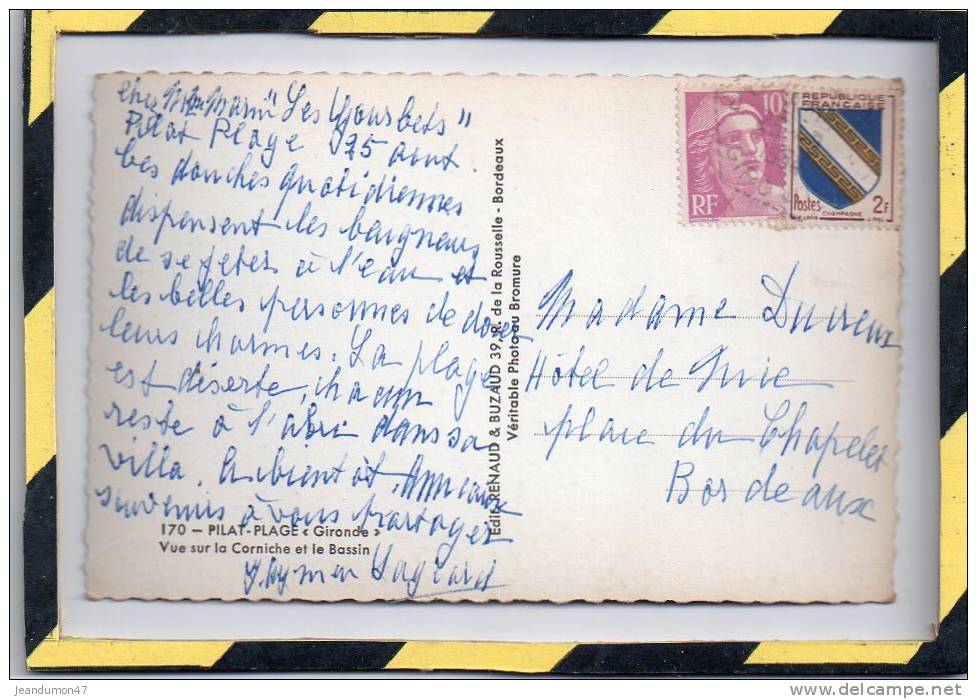 chez Mme Marin "Les Yourbets"
Pilat Plage 25 août.
Les douches quotidiennes
dispensent les baigneurs
de se jeter à l'eau et
les belles personnes de dorer
leurs charmes. La plage
est déserte, chacun
reste à l'abri dans sa
villa. A bientôt. Amicaux
souvenirs à vous partager
170 — PILAT-PLAGE « Gironde »
Vue sur la Corniche et le Bassin
Edit. RENAUD & BUZAUD 39, R. de la Rousselle - Bordeaux
Véritable Photo au Bromure
10F
RF
REPUBLIQUE
FRANÇAISE
Postes
CHAMPAGNE
2F
Madame
Hôtel de
place du Chapelet
Bordeaux
jeandumon47